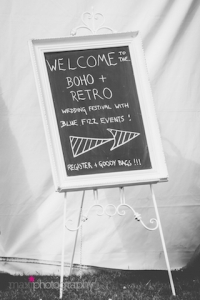 WELCOME TO THE
BOHO +
RETRO
WEDDING FESTIVAL WITH
BLUE FIZZ EVENTS!
REGISTER + GOODY BAGS !!!
photography